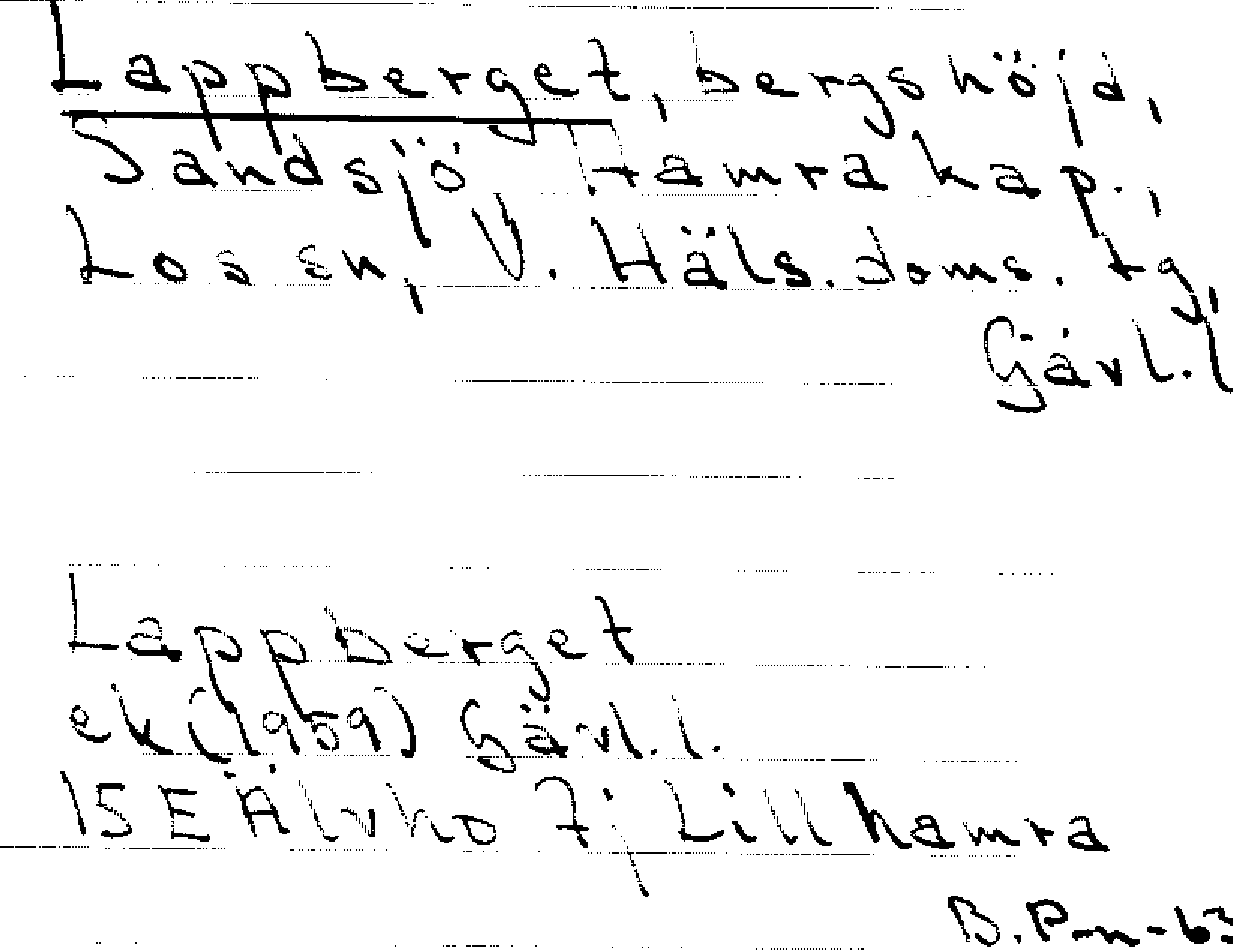 Lappberget, bergshöjd,
Sandsjö, Hamra kap.,
Los sn, V. Häls. doms. tg,
Gävl. l
Lappberget
ek (1959) Gävl. l.
15E Älvho 7j Lillhamra
B. P-n-63